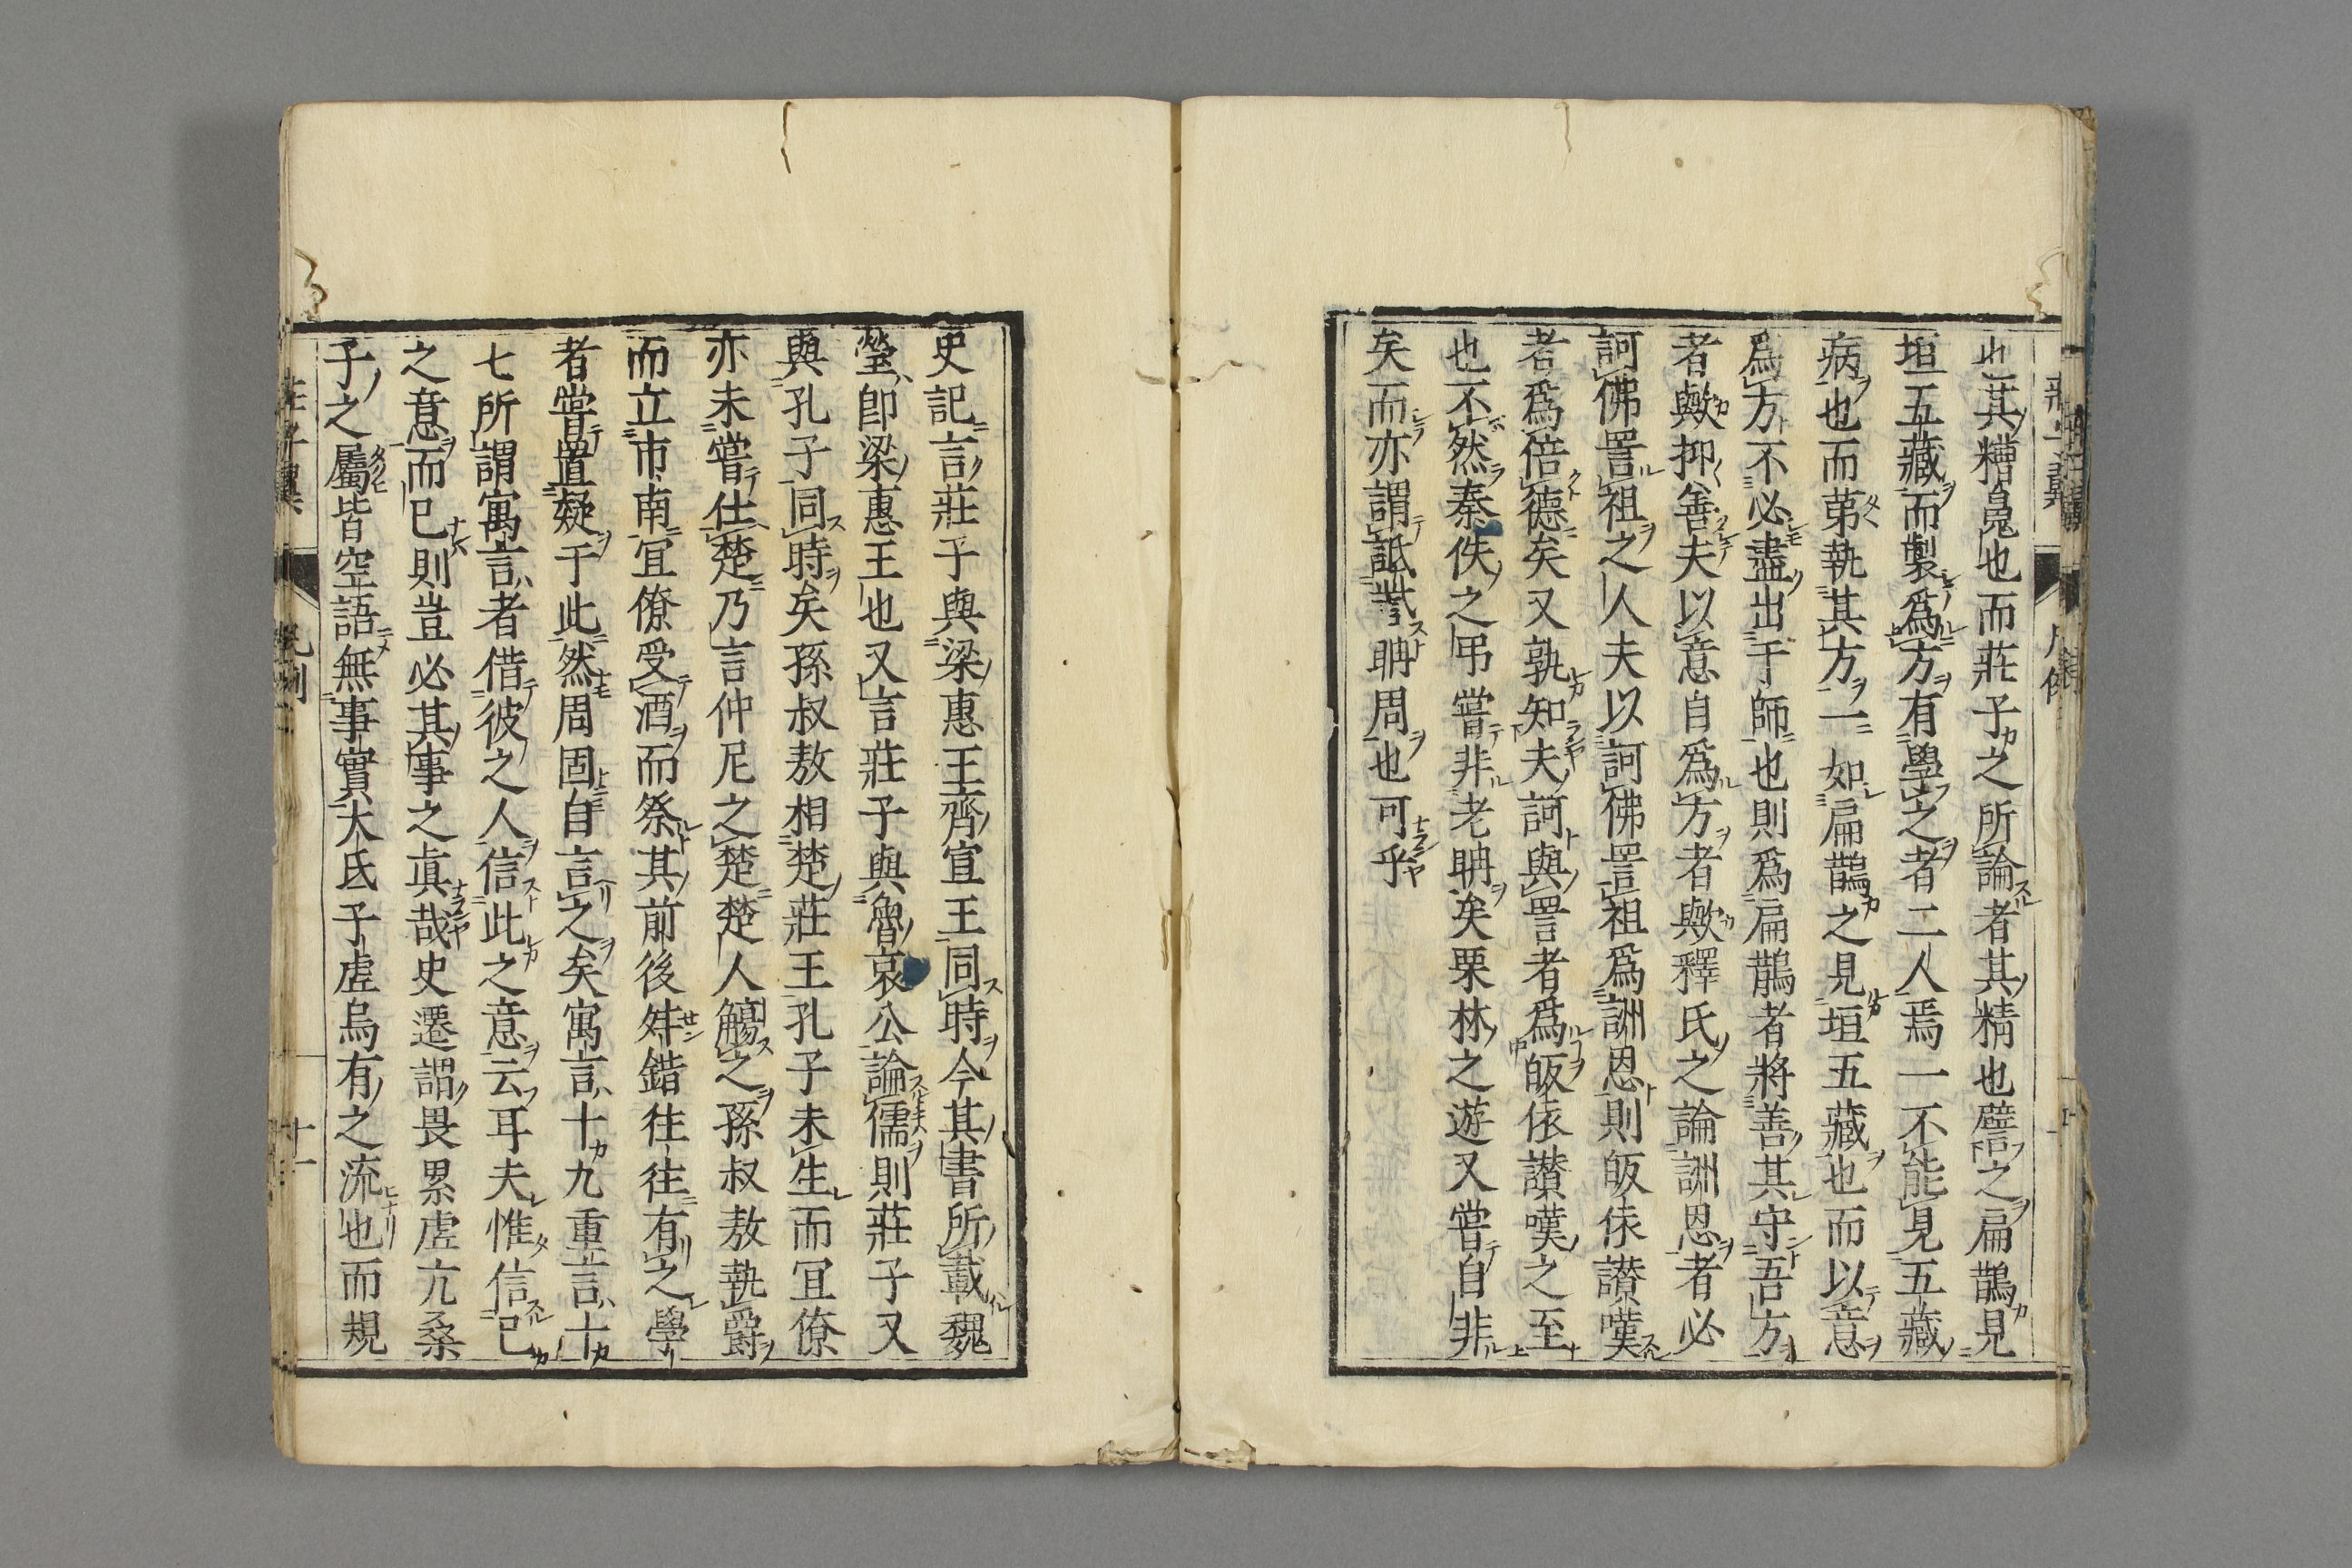 也其糟魄也而莊子之所論者其精也譬之扁鵲見
垣五藏而製爲方有學之者二人焉一不能見五藏
病也而苐執其方一如扁鵲之見垣五藏也而以意
爲方不必盡出于師也則爲扁鵲者將善其守吾方
者歟抑善夫以意自爲方者歟釋氏之論詶恩者必
訶佛詈祖之人夫以訶佛詈祖爲詶恩則皈依讃嘆
者爲倍德矣又孰知夫訶與詈者爲皈依讃嘆之至
也不然秦佚之弔嘗非老聃矣栗林之遊又嘗自非
矣而亦謂詆訾聃周也可乎
史記言莊子與梁惠王齊宣王同時今其書所載魏
瑩即梁惠王也又言莊子與魯哀公論儒則莊子又
與孔子同時矣孫叔敖相楚莊王孔子未生而冝僚
亦未嘗仕楚乃言仲尼之楚楚人觴之孫叔敖執爵
而立市南冝僚受酒而祭其前後舛錯往往有之學
者嘗置疑于此然周固自言之矣寓言十九重言十
七所謂寓言者借彼之人信此之意云耳夫惟信己
之意而已則豈必其事之眞哉史遷謂畏累虛亢桑
子之屬皆空語無事實大氐子虛烏有之流也而規
莊子翼
十一